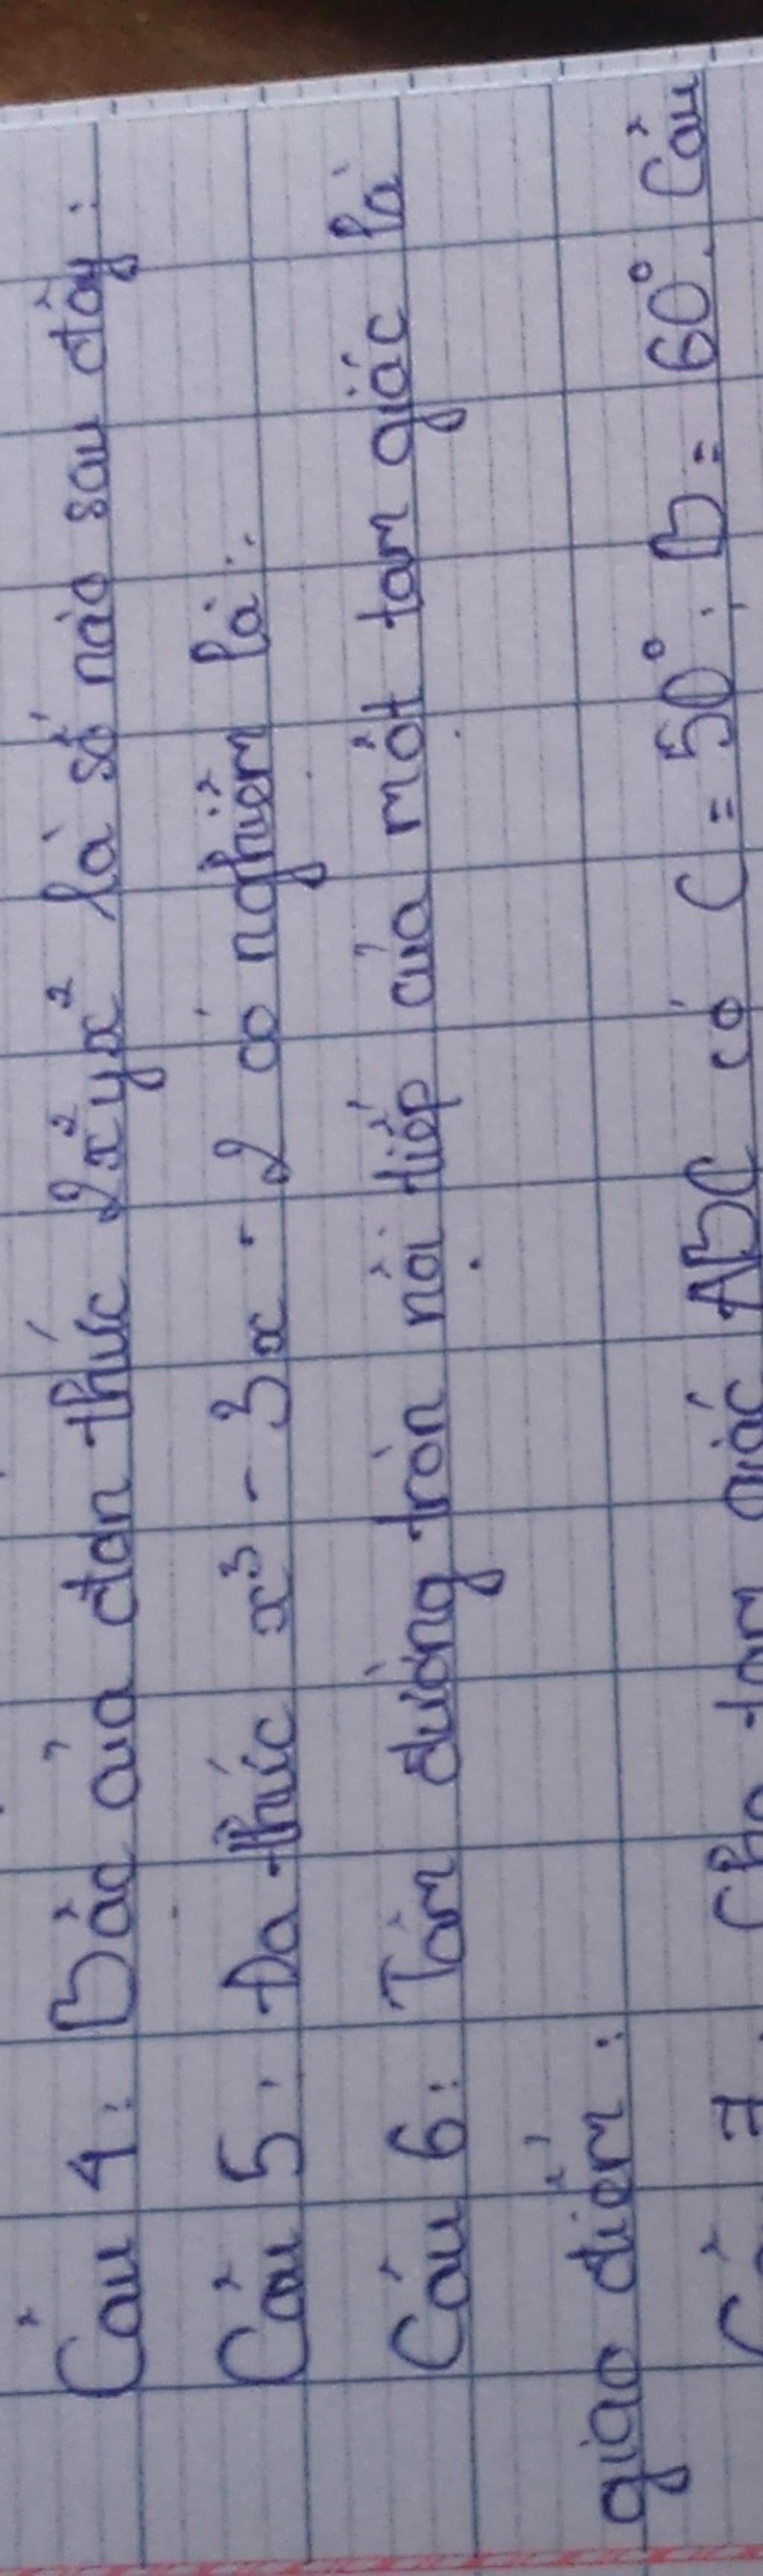 Câu 4: Bậc của đơn thức 2x²yx² là số nào sau đây:
Câu 5: Đa thức x³ - 3x - 2 có nghiệm là:
Câu 6: Tâm đường tròn nội tiếp của một tam giác là
giao điểm:
Câu 7. Cho tam giác ABC có C = 50°, B = 60°. Câu